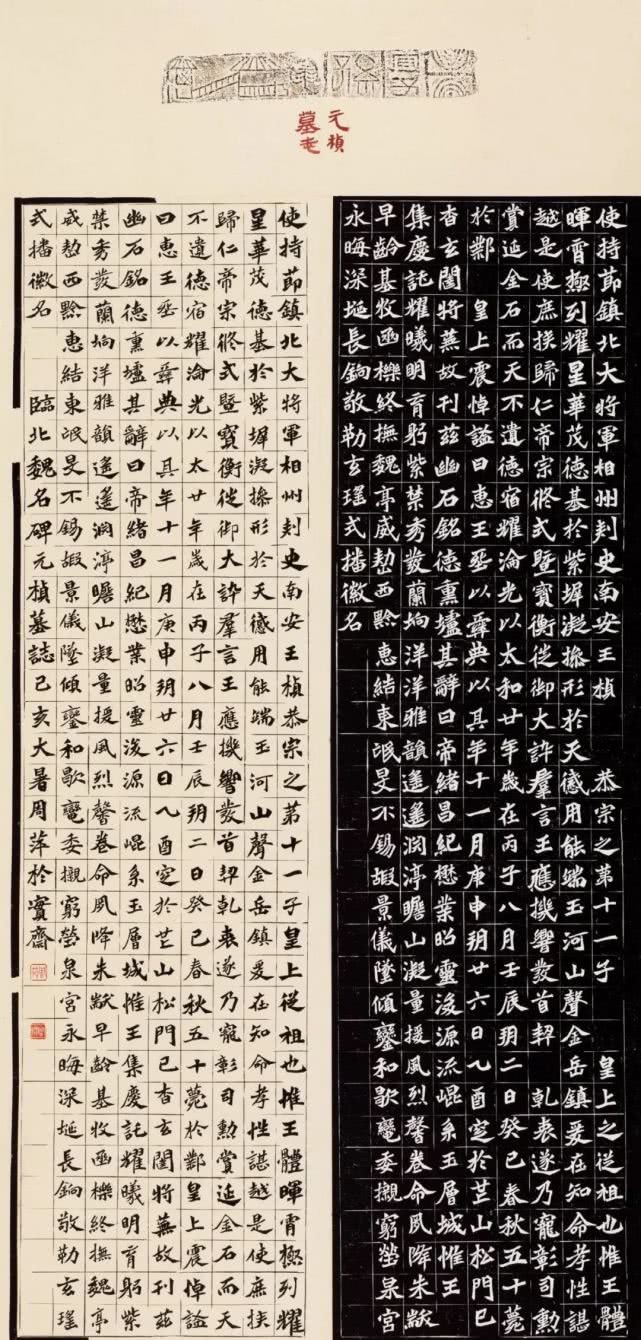 元楨
墓志
使持節鎮北大將軍相州刺史南安王楨　恭宗之第十一子　皇上之從祖也惟王體
暉霄極列耀星華茂德基於紫墀凝操形於天感用能端玉河山聲金岳鎮爰在知命孝性諶
越是使庶族歸仁帝宗攸式暨寶衡從御大訞羣言王應機響發首契　乾衷遂乃寵彰司勳
賞延金石而天不遺德宿耀淪光以太和廿年歲在丙子八月壬辰朔二日癸巳春秋五十薨
於鄴　皇上震悼諡曰惠王以彝典以其年十一月庚申朔廿六日乙酉窆於芒山松門已
杳玄闥將蕪故刊茲幽石銘德熏墟其辭曰帝緒昌紀懋業昭靈浚源流崐系玉層城惟王
集慶託耀曦明育躬紫禁秀發蘭坰洋洋雅韻遙遙淵渟瞻山凝量援風烈馨卷命夙降朱黻
早齡基牧函櫟終撫魏亭威懃西黔惠結東氓旻不錫嘏景儀墜傾鑾和歇委櫬窮塋泉宮
永晦深埏長鐍敬勒玄瑤式播徽名
使持節鎮北大將軍相州刺史南安王楨恭宗之第十一子皇上從祖也惟王體暉霄極列耀
星華茂德基於紫墀凝操形於天感用能端玉河山聲金岳鎮爰在知命孝性諶越是使庶族
歸仁帝宗攸式暨寶衡從御大訞羣言王應機響發首契乾衷遂乃寵彰司勳賞延金石而天
不遺德宿耀淪光以太廿年歲在丙子八月壬辰朔二日癸巳春秋五十薨於鄴皇上震悼諡
曰惠王以彝典以其年十一月庚申朔廿六日乙酉窆於芒山松門已杳玄闥將蕪故刊茲
幽石銘德熏墟其辭曰帝緒昌紀懋業昭靈浚源流崐系玉層城惟王集慶託耀曦明育躬紫
禁秀發蘭坰洋雅韻遙遙淵渟瞻山凝量援風烈馨卷命夙降朱黻早齡基牧函櫟終撫魏亭
威懃西黔惠結東氓旻不錫嘏景儀墜傾鑾和歇委櫬窮塋泉宮永晦深埏長鐍敬勒玄瑤
式播徽名　臨北魏名碑元楨墓誌己亥大暑周萍於實齋